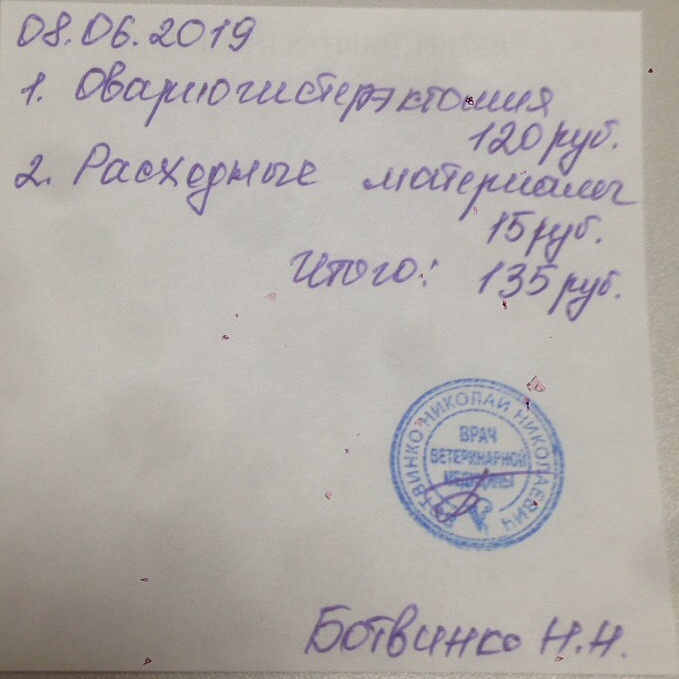 08.06.2019
1. Овариогистерэктомия
120 руб.
2. Расходные материалы
15 руб.
Итого: 135 руб.
БОТВИНКО НИКОЛАЙ НИКОЛАЕВИЧ
ВРАЧ
ВЕТЕРИНАРНОЙ
МЕДИЦИНЫ
Ботвинко Н.Н.